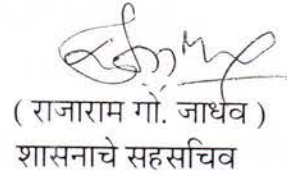 ( राजाराम गों. जाधव )
शासनाचे सहसचिव